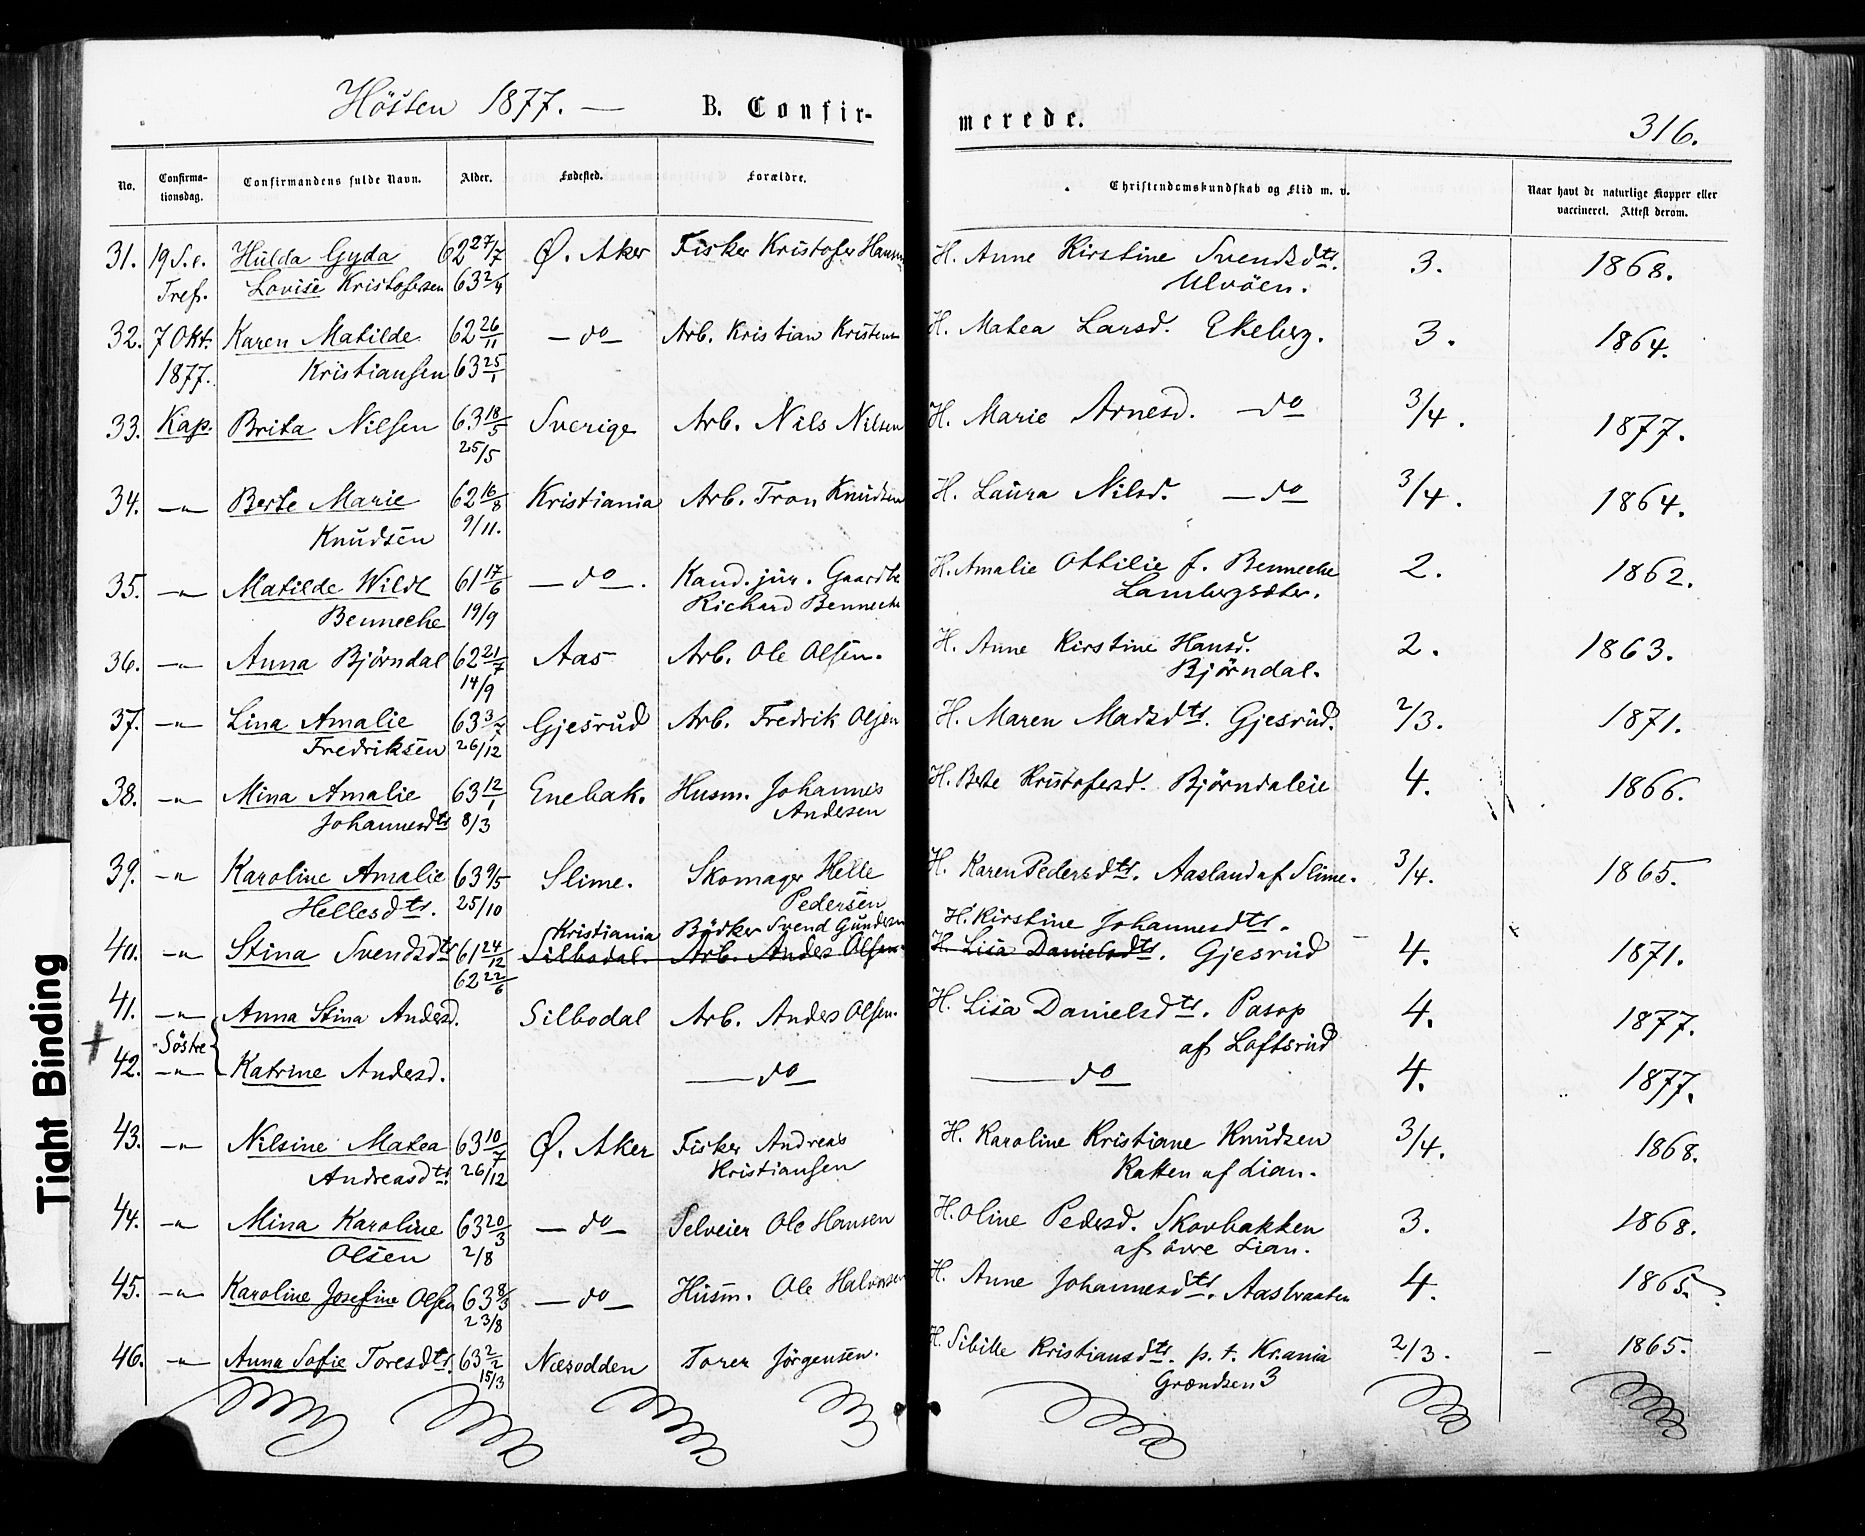 Hösten 1877. — B. Confir-
merede. 316.
No. Confirma-tionsdag. Confirmandens fulde Navn. Alder. Fødested. Forældre. Christendomskundskab og Flid m. v. Naar havt de naturlige Kopper eller vaccineret. Attest derom.
31. 19 S. e. Hulda Gyda 62 27/7 Ø. Aker Fisker Kristofer Hansen H. Anne Kirstine Svendsdtr. 3. 1868.
Tref. Lovise Kristofersen 63 2/4 Ulvöen.
32. 7 Okt. Karen Matilde 62 26/11 — do — Arb. Kristian Kristens H. Matea Larsd. Ekeberg. 3. 1864.
1877. Kristiansen 63 25/1
33. Kap. Brita Nilsen 63 18/5 Sverige Arb. Nils Nilsen H. Marie Arnesd. — do 3/4. 1877.
25/5
34. —"— Berte Marie 62 16/8 Kristiania Arb. Tron Knudsen H. Laura Nilsd. — do 3/4. 1864.
Knudsen 9/11.
35. —"— Matilde Wildt 61 17/6 — do —. Kand. jur. Gaardbr H. Amalie Ottilie f. Benneche 2. 1862.
Benneche 19/9 Richard Benneche Lambergsdter.
36. —"— Anna Björndal 62 21/7 Aas Arb. Ole Olsen. H. Anne Kirstine Hansd. 2. 1863.
14/9 Björndal.
37. —"— Lina Amalie 63 3/7 Gjesrud Arb. Fredrik Olsen H. Maren Madsdtr. Gjesrud. 2/3. 1871.
Fredriksen 26/12
38. —"— Mina Amalie 63 12/1 Enebak. Husm. Johannes H. Berte Kristofersd. Björndaleie 4. 1866.
Johannesdtr 8/3 Andersen
39. —"— Karoline Amalie 63 9/5 Slime. Skomager Helle H. Karen Pedersdtr. Aasland af Slime. 3/4. 1865.
Hellesdtr. 25/10 Pedersen
Kristiania Bödker Svend Gundersen H. Kirstine Johannesdtr.
40. —"— Stina Svendsdtr 61 24/12 Silbodal. Arb. Anders Olsen. H. Lisa Danielsdtr. Gjesrud 4. 1871.
62 22/6
41. —"— Anna Stina Andersd. Silbodal Arb. Anders Olsen. H. Lisa Danielsdtr. Pasop 4. 1877.
Söstre af Loftsrud
42. —"— Katrine Andersd. — do — — do — 4. 1877.
43. —"— Nilsine Matea 63 10/7 Ø. Aker Fisker Andreas H. Karoline Kristiane Knudsen 3/4. 1868.
Andreasdtr. 26/12 Kristiansen Katten af Lian.
44. —"— Mina Karoline 63 20/3 — do — Selveier Ole Hansen H. Oline Pedersd. Skovbakken 3. 1868.
Olsen 2/8 af övre Lian.
45. —"— Karoline Josefine Olsen 63 8/3 — do — Husm. Ole Halvorsen H. Anne Johannesdtr. Aasbraaten 4. 1865.
23/8
46. —"— Anna Sofie Toresdtr. 63 2/2 Næsodden Torer Jörgensen. H. Sibille Kristiansdtr. p. t. Kr.ania 2/3. — 1865.
15/3 Grændsen 3
Tight Binding